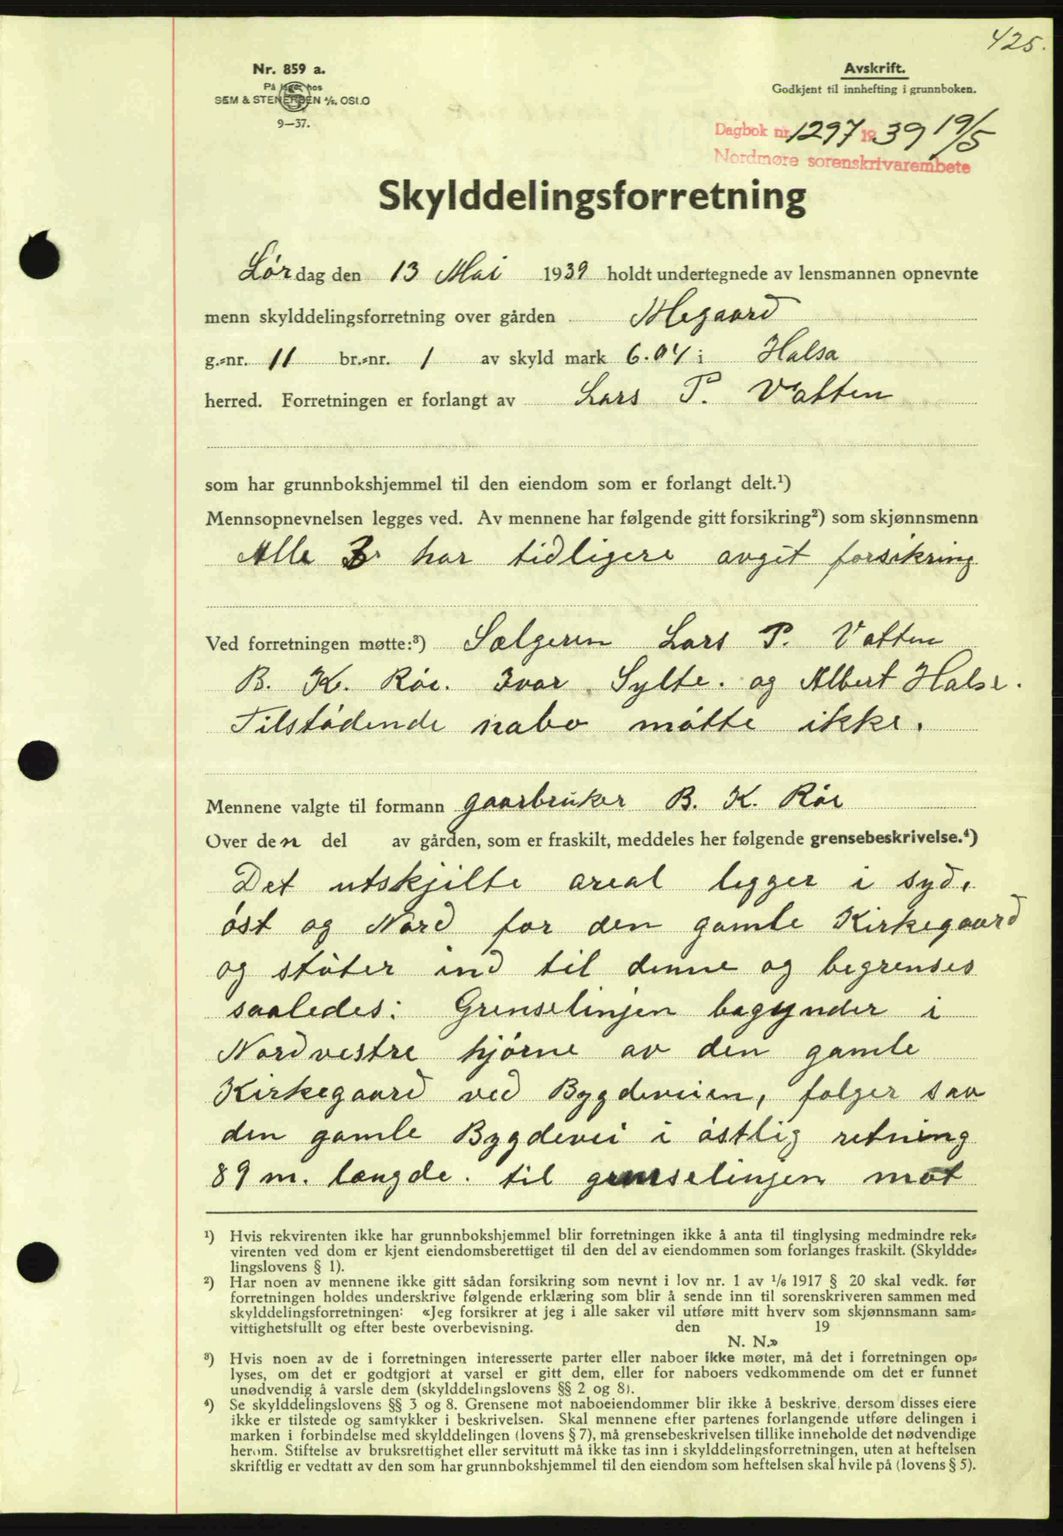 425.
Nr. 859 a.
På lager hos
SEM & STENERSEN A/S. OSLO
9—37.
Avskrift.
Godkjent til innhefting i grunnboken.
Dagbok nr. 1297 1939 19/5
Nordmøre sorenskrivarembete
Skylddelingsforretning
Lørdag den 13 Mai 1939 holdt undertegnede av lensmannen opnevnte
menn skylddelingsforretning over gården Megaard
g.=nr. 11 br.=nr. 1 av skyld mark 6.04 i Halsa
herred. Forretningen er forlangt av Lars P. Vatten
som har grunnbokshjemmel til den eiendom som er forlangt delt.¹)
Mennsopnevnelsen legges ved. Av mennene har følgende gitt forsikring²) som skjønnsmenn
Alle 3 har tidligere avgit forsikring
Ved forretningen møtte:³) Sælgeren Lars P. Vatten
B. K. Røe. Ivar Sylte. og Albert Halse.
Tilstødende nabo møtte ikke.
Mennene valgte til formann gaarbruker B. K. Røe
Over den del av gården, som er fraskilt, meddeles her følgende grensebeskrivelse.⁴)
Det utskjilte areal legger i syd,
øst og Nord for den gamle Kirkegaard
og støter ind til denne og begrenses
saaledes: Grenselinjen begynder i
Nordvestre hjørne av den gamle
Kirkegaard ved Bygdeveien, følger saa
den gamle Bygdevei i østlig retning
89 m. længde. til grenselinjen mot
¹) Hvis rekvirenten ikke har grunnbokshjemmel blir forretningen ikke å anta til tinglysing medmindre rek=
virenten ved dom er kjent eiendomsberettiget til den del av eiendommen som forlanges fraskilt. (Skyldde=
lingslovens § 1).
²) Har noen av mennene ikke gitt sådan forsikring som nevnt i lov nr. 1 av 1/6 1917 § 20 skal vedk. før
forretningen holdes underskrive følgende erklæring som blir å sende inn til sorenskriveren sammen med
skylddelingsforretningen: «Jeg forsikrer at jeg i alle saker vil utføre mitt hverv som skjønnsmann sam=
vittighetsfullt og efter beste overbevisning. den 19
N. N.»
³) Hvis noen av de i forretningen interesserte parter eller naboer ikke møter, må det i forretningen op=
lyses, om det er godtgjort at varsel er gitt dem, eller for naboers vedkommende om det er funnet
unødvendig å varsle dem (skylddelingslovens §§ 2 og 8).
⁴) Se skylddelingslovens §§ 3 og 8. Grensene mot naboeiendommer blir ikke å beskrive, dersom disses eiere
ikke er tilstede og samtykker i beskrivelsen. Skal mennene efter partenes forlangende utføre delingen i
marken i forbindelse med skylddelingen (lovens § 7), må grensebeskrivelsen tillike inneholde det nødvendige
herom. Stiftelse av bruksrettighet eller servitutt må ikke tas inn i skylddelingsforretningen, uten at heftelsen
skriftlig er vedtatt av den som har grunnbokshjemmel til den eiendom som heftelsen skal hvile på (lovens § 5).